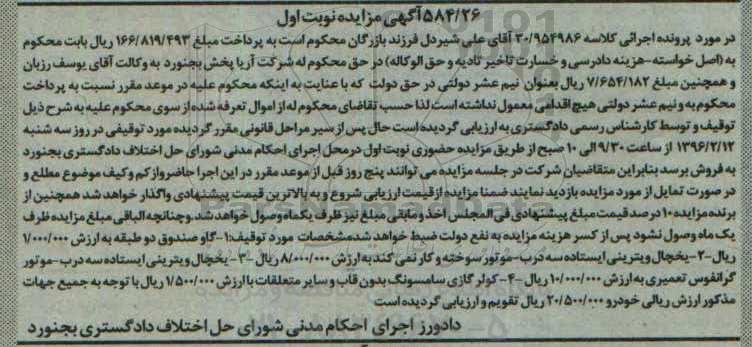 ۵۸۴/۲۶آگهی مزایده نوبت اول
در مورد پرونده اجرائی کلاسه ۳۰/۹۵۴۹۸۶ آقای علی شیردل فرزند بازرگان محکوم است به پرداخت مبلغ ۱۶۶/۸۱۹/۴۹۳ ریال بابت محکوم
به (اصل خواسته-هزینه دادرسی و خسارت تاخیر تادیه و حق الوکاله) در حق محکوم له شرکت آریا پخش بجنورد به وکالت آقای یوسف رزبان
و همچنین مبلغ ۷/۶۵۴/۱۸۲ ریال بعنوان نیم عشر دولتی در حق دولت که با عنایت به اینکه محکوم علیه در موعد مقرر نسبت به پرداخت
محکوم به و نیم عشر دولتی هیچ اقدامی معمول نداشته است لذا حسب تقاضای محکوم له از اموال تعرفه شده از سوی محکوم علیه به شرح ذیل
توقیف و توسط کارشناس رسمی دادگستری به ارزیابی گردیده است حال پس از سیر مراحل قانونی مقرر گردیده مورد توقیفی در روز سه شنبه
۱۳۹۶/۲/۱۲ از ساعت ۹/۳۰ الی ۱۰ صبح از طریق مزایده حضوری نوبت اول در محل اجرای احکام مدنی شورای حل اختلاف دادگستری بجنورد
به فروش برسد بنابراین متقاضیان شرکت در جلسه مزایده می توانند پنج روز قبل از موعد مقرر در این اجرا حاضر و از کم و کیف موضوع مطلع و
در صورت تمایل از مورد مزایده بازدید نمایند ضمنا مزایده از قیمت ارزیابی شروع و به بالاترین قیمت پیشنهادی واگذار خواهد شد همچنین از
برنده مزایده ۱۰ درصد قیمت مبلغ پیشنهادی فی المجلس اخذ و مابقی مبلغ نیز ظرف یکماه وصول خواهد شد.وچنانچه الباقی مبلغ مزایده ظرف
یک ماه وصول نشود پس از کسر هزینه مزایده به نفع دولت ضبط خواهد شد مشخصات مورد توقیف:۱-گاو صندوق دو طبقه به ارزش ۱/۰۰۰/۰۰۰
ریال-۲-یخچال ویترینی ایستاده سه درب-موتور سوخته و کار نمی کند به ارزش ۸/۰۰۰/۰۰۰ ریال-۳-یخچال ویترینی ایستاده سه درب-موتور
گرانفوس تعمیری به ارزش ۱۰/۰۰۰/۰۰۰ ریال-۴-کولر گازی سامسونگ بدون قاب و سایر متعلقات با ارزش ۱/۵۰۰/۰۰۰ ریال با توجه به جمیع جهات
مذکور ارزش ریالی خودرو ۲۰/۵۰۰/۰۰۰ ریال تقویم و ارزیابی گردیده است
دادورز اجرای احکام مدنی شورای حل اختلاف دادگستری بجنورد